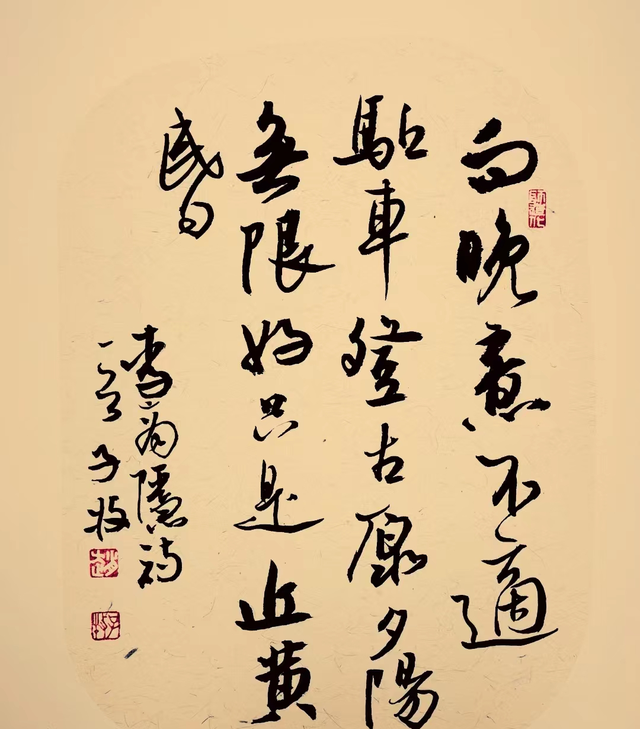 向晚意不適
驅車登古原夕陽
無限好只是近黄
昏
李商隱詩
子牧